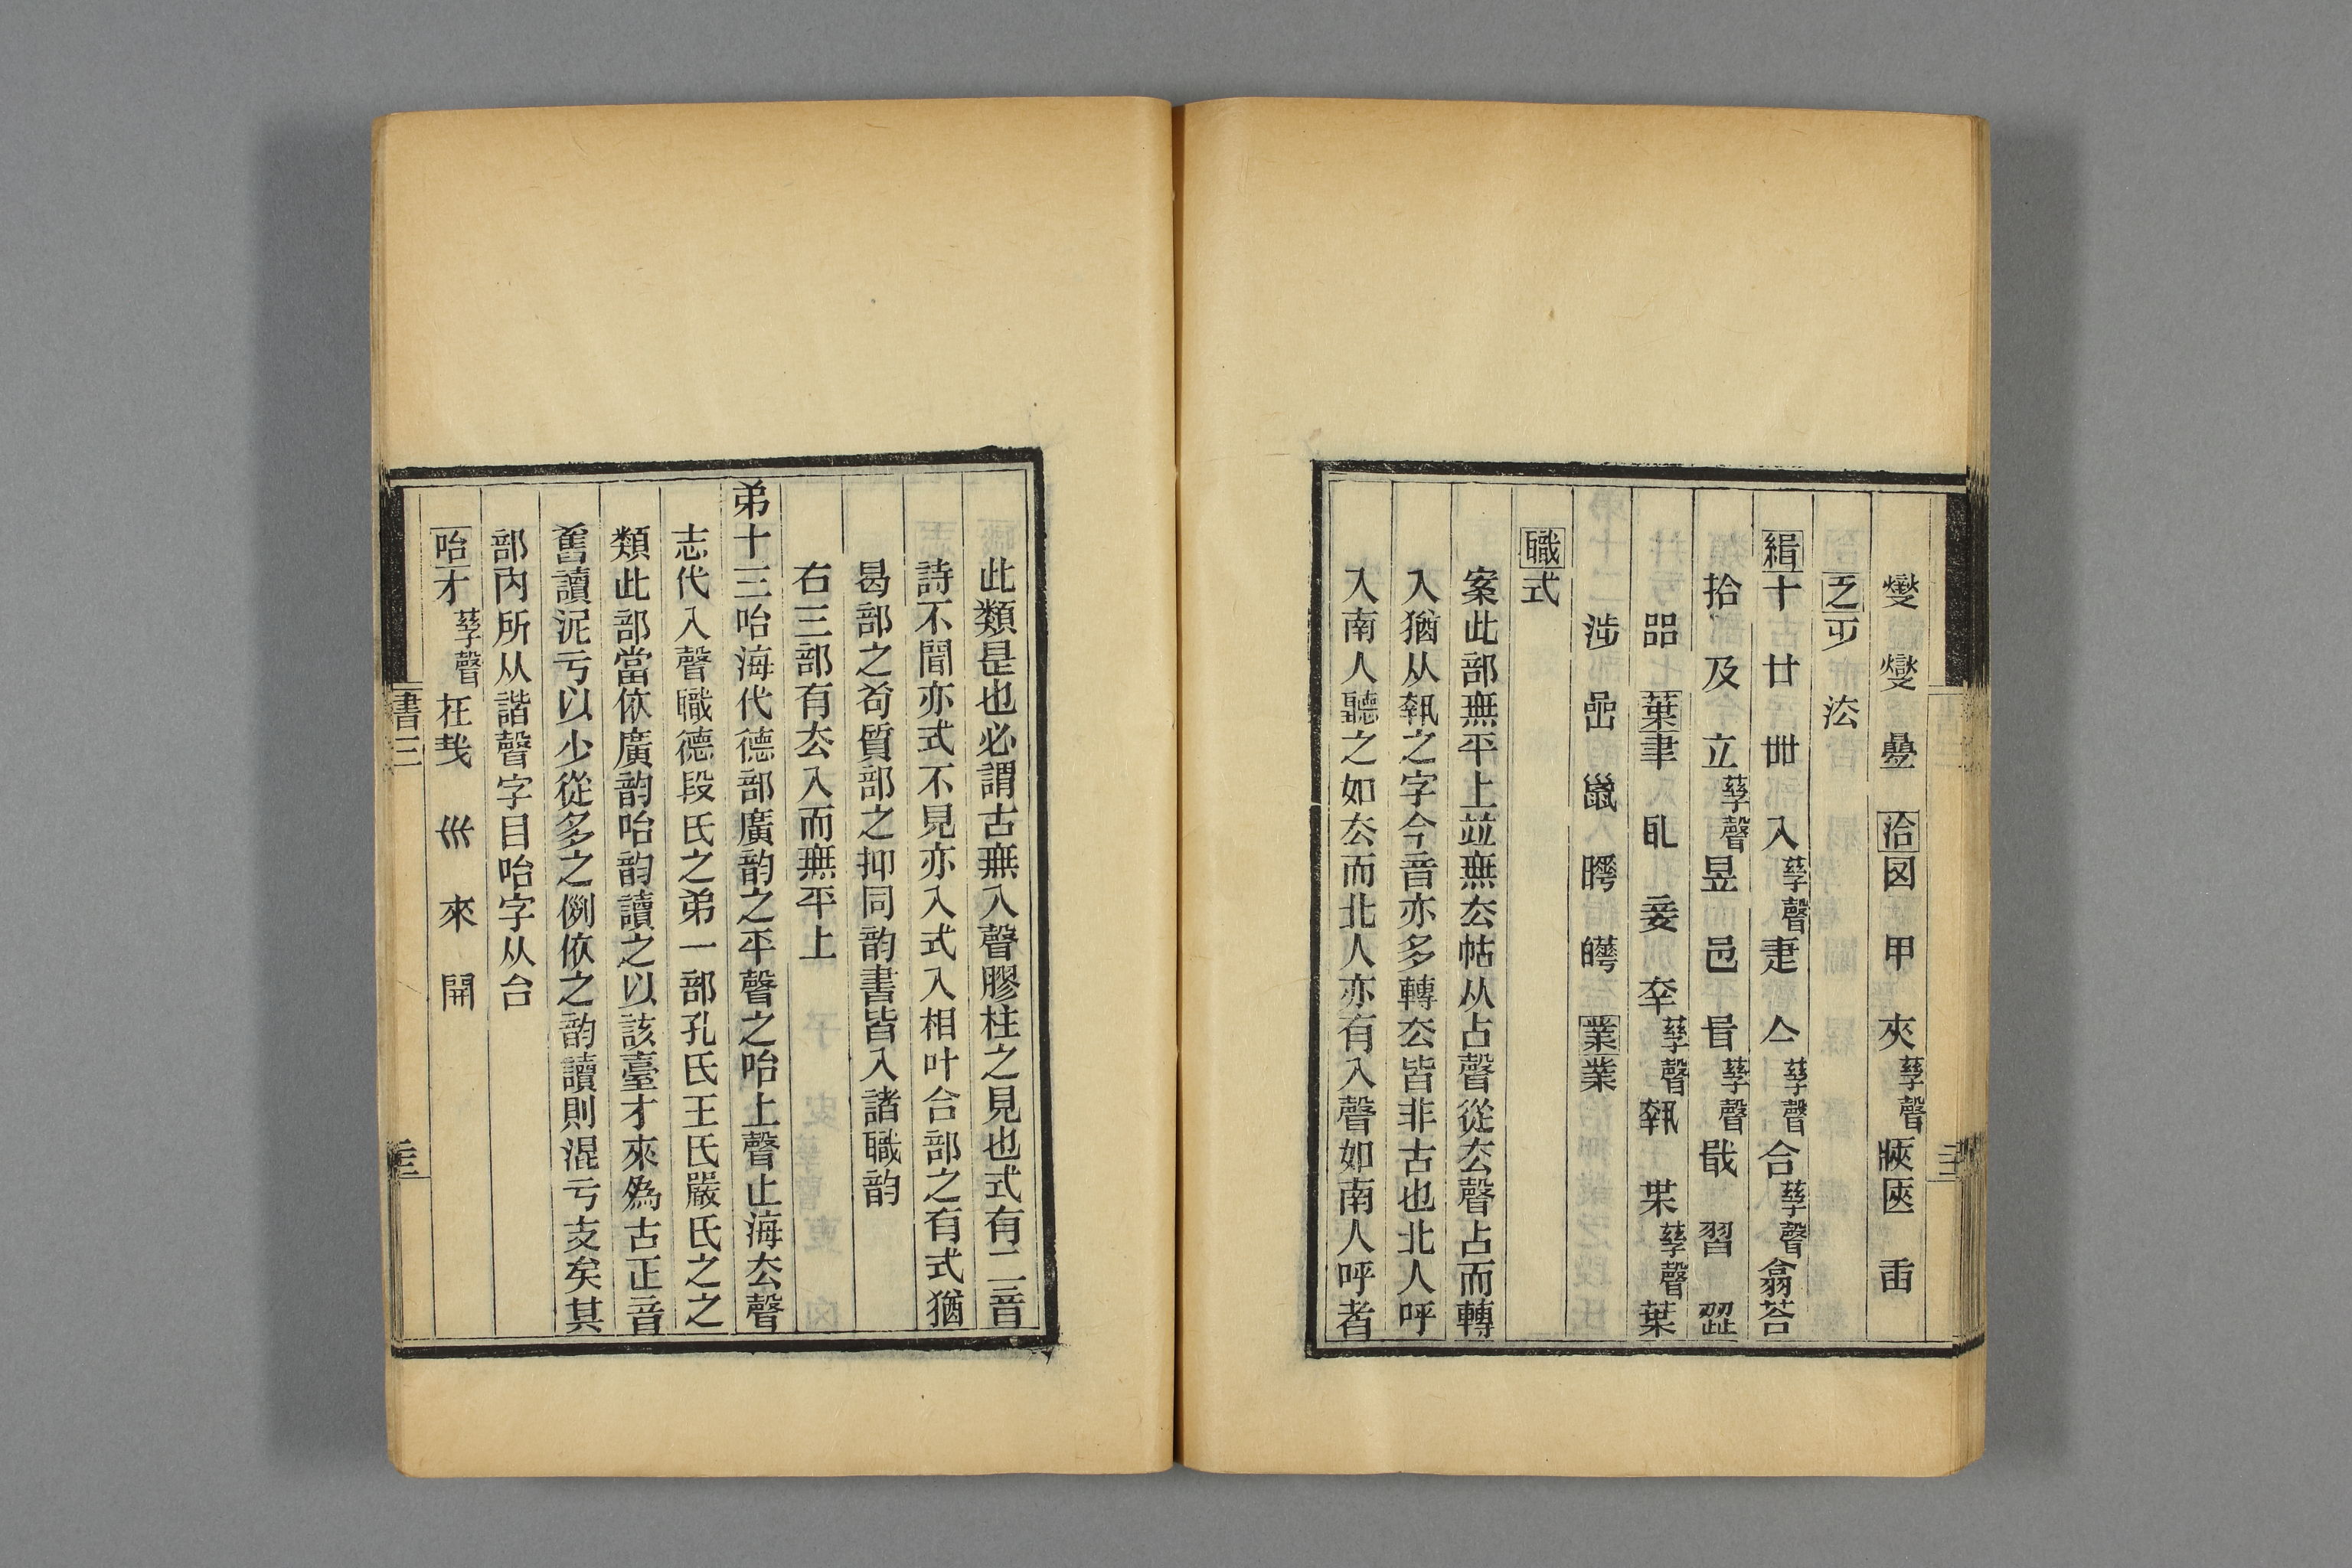 燮 燮 疊 洽 囡 甲 夾 孳聲 瘱 匧 臿
乏 丏 㳒
緝 十 廿 卌 入 孳聲 疌 亼 孳聲 合 孳聲 翕 荅
拾 及 立 孳聲 昱 邑 咠 孳聲 戢 習 歰
品 葉 聿 耴 妾 㚔 孳聲 執 枼 孳聲 葉
涉 嵒 巤 曄 皣 業 業
職 式
案此部無平上並無厺帖从占聲從厺聲占而轉
入猶从執之字今音亦多轉厺皆非古也北人呼
入南人聽之如厺而北人亦有入聲如南人呼者
此類是也必謂古無入聲膠柱之見也式有二音
詩不聞亦式不見亦入式入相叶合部之有式猶
曷部之㕣質部之抑同韵書皆入諸職韵
右三部有厺入而無平上
弟十三咍海代德部廣韵之平聲之咍上聲止海厺聲
志代入聲職德段氏之弟一部孔氏王氏嚴氏之之
類此部當依廣韵咍韵讀之以該臺才來爲古正音
舊讀泥亏以少從多之例依之韵讀則混亏支矣其
部內所从諧聲字目咍字从台
咍 才 孳聲 在 𢦏 巛 來 開
書三